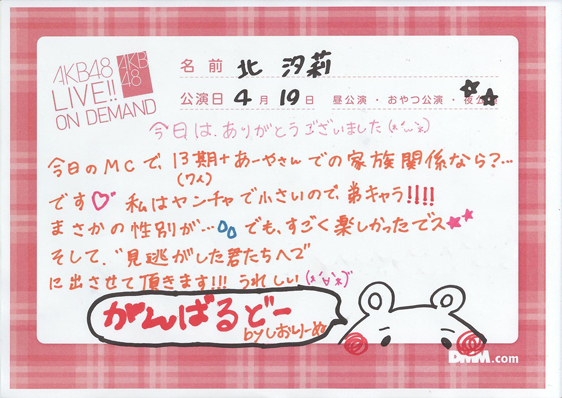 AKB48
LIVE!!
ON DEMAND
AKB
48
名前 北 汐莉
公演日 4月19日 昼公演・おやつ公演・夜公演
今日は、ありがとうございました
今日のMCで、13期+あーやさんでの家族関係なら?…
(7人)
です♡ 私はヤンチャで小さいので、弟キャラ!!!!
まさかの性別が… でも、すごく楽しかったでス★★
そして、"見逃がした君たちへ2"
に出させて頂きます!!! うれしい
がんばるどー
byしおりーぬ
DMM.com